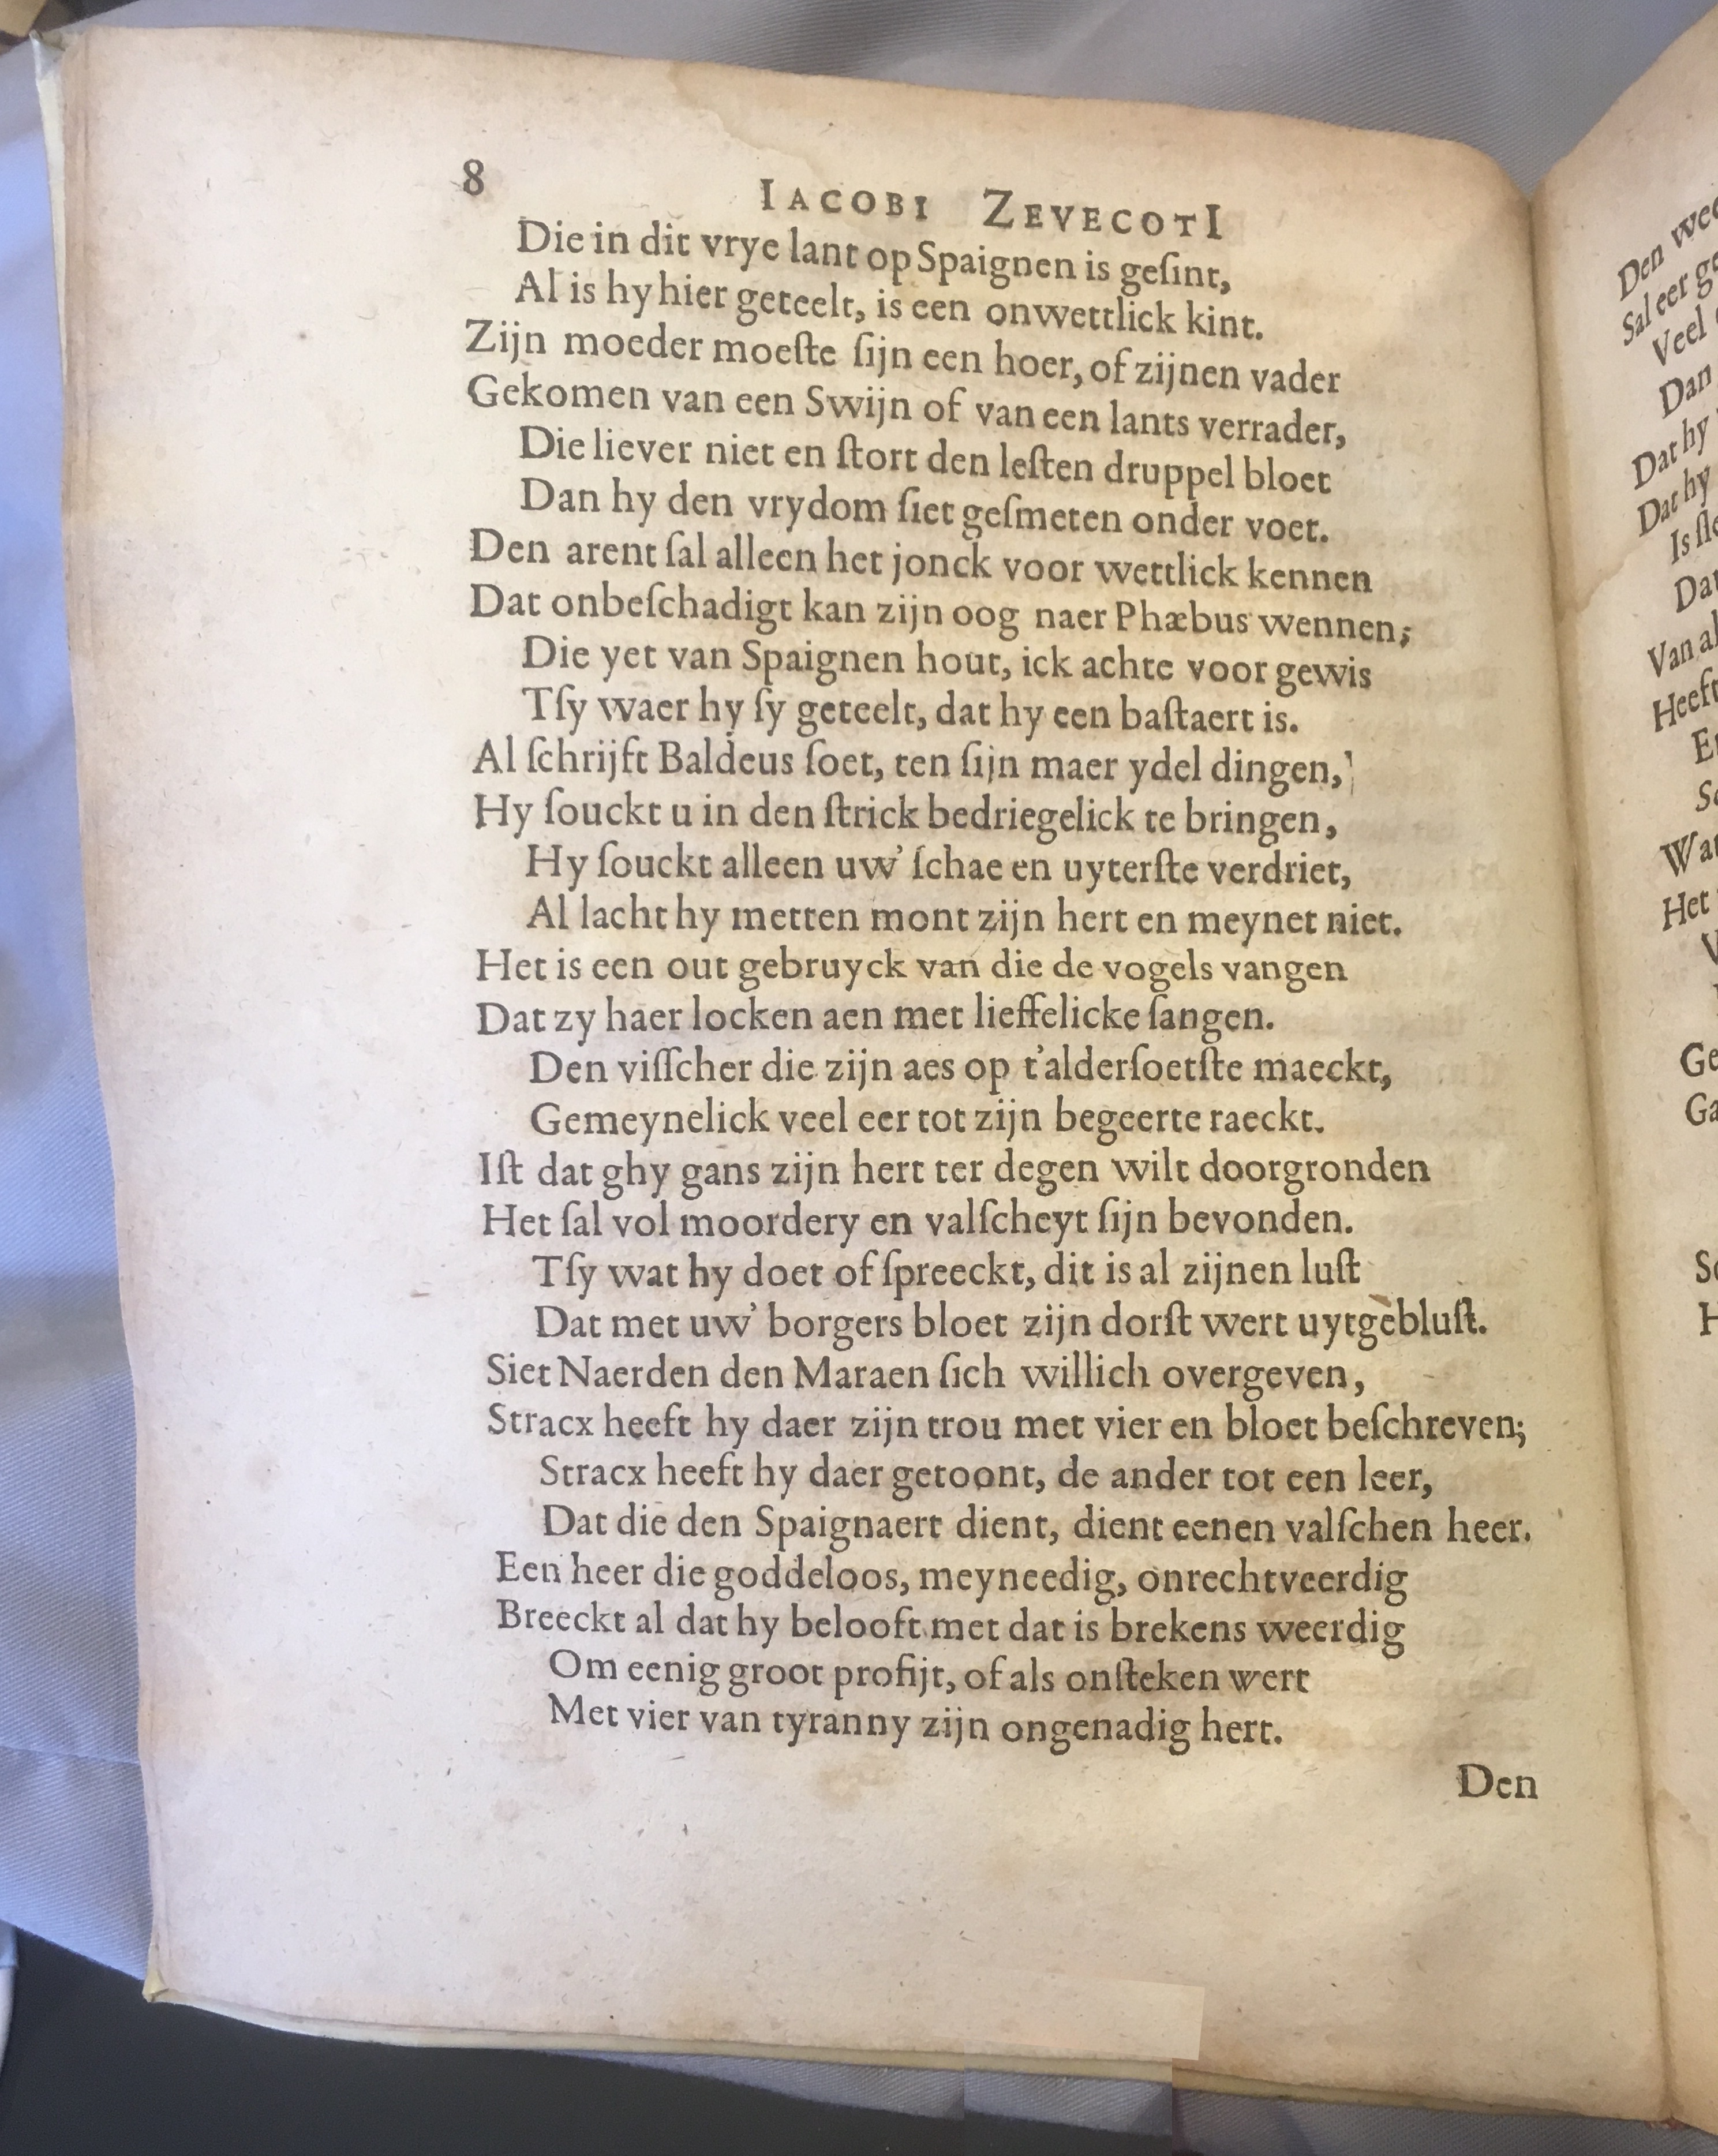 8 IACOBI ZEVECOTI
Die in dit vrye lant op Spaignen is geſint,
Al is hy hier geteelt, is een onwettlick kint.
Zijn moeder moeſte ſijn een hoer, of zijnen vader
Gekomen van een Swijn of van een lants verrader,
Die liever niet en ſtort den leſten druppel bloet
Dan hy den vrydom ſiet geſmeten onder voet.
Den arent ſal alleen het jonck voor wettlick kennen
Dat onbeſchadigt kan zijn oog naer Phæbus wennen;
Die yet van Spaignen hout, ick achte voor gewis
Tſy waer hy ſy geteelt, dat hy een baſtaert is.
Al ſchrijft Baldeus ſoet, ten ſijn maer ydel dingen,
Hy ſouckt u in den ſtrick bedriegelick te bringen,
Hy ſouckt alleen uw' ſchae en uyterſte verdriet,
Al lacht hy metten mont zijn hert en meynet niet.
Het is een out gebruyck van die de vogels vangen
Dat zy haer locken aen met lieffelicke ſangen.
Den viſſcher die zijn aes op t'alderſoetſte maeckt,
Gemeynelick veel eer tot zijn begeerte raeckt.
Iſt dat ghy gans zijn hert ter degen wilt doorgronden
Het ſal vol moordery en valſcheyt ſijn bevonden.
Tſy wat hy doet of ſpreeckt, dit is al zijnen luſt
Dat met uw' borgers bloet zijn dorſt wert uytgebluſt.
Siet Naerden den Maraen ſich willich overgeven,
Stracx heeft hy daer zijn trou met vier en bloet beſchreven;
Stracx heeft hy daer getoont, de ander tot een leer,
Dat die den Spaignaert dient, dient eenen valſchen heer.
Een heer die goddeloos, meyneedig, onrechtveerdig
Breeckt al dat hy belooft met dat is brekens weerdig
Om eenig groot profijt, of als onſteken wert
Met vier van tyranny zijn ongenadig hert.
Den
Den
Sal eer
Veel
Dan
Dat hy
Dat hy
Is
Van
Heeft
Het